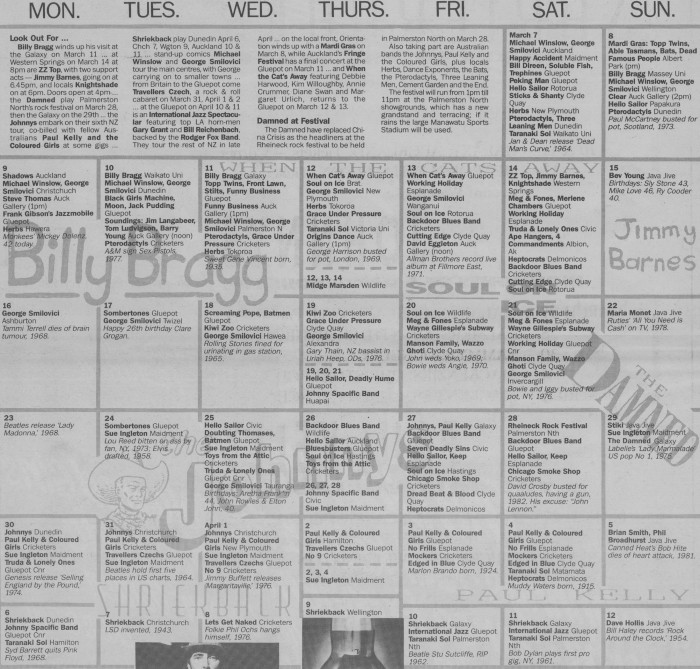 MON. TUES. WED. THURS. FRI. SAT. SUN.
Look Out For ...
Billy Bragg winds up his visit at
the Galaxy on March 11 ... at
Western Springs on March 14 at
8pm are ZZ Top, with two support
acts — Jimmy Barnes, going on at
6.45pm, and locals Knightshade
on at 6pm. Doors open at 4pm ...
the Damned play Palmerston
North's rock festival on March 28,
then the Galaxy on the 29th ... the
Johnnys embark on their sixth NZ
tour, co-billed with fellow Aus-
tralians Paul Kelly and the
Coloured Girls at some gigs ...
Shriekback play Dunedin April 6,
Chch 7, Wgtn 9, Auckland 10 &
11, ... stand-up comics Michael
Winslow and George Smilovici
tour the main centres, with George
carrying on to smaller towns ...
from Britain to the Gluepot come
Travellers Czech, a rock & roll
cabaret on March 31, April 1 & 2
... at the Gluepot on April 10 & 11
is an International Jazz Spectacu-
lar featuring top LA horn-men
Gary Grant and Bill Reichenbach,
backed by the Rodger Fox Band.
They tour the rest of NZ in late
April ... on the local front, Orienta-
tion winds up with a Mardi Gras on
March 8, while Auckland's Fringe
Festival has a final concert at the
Gluepot on March 11 ... and When
the Cat's Away featuring Debbie
Harwood, Kim Willoughby, Annie
Crummer, Diane Swan and Mar-
garet Urlich, returns to the
Gluepot on March 12 & 13.
Damned at Festival
The Damned have replaced Chi-
na Crisis as the headliners at the
Rheineck rock festival to be held
in Palmerston North on March 28.
Also taking part are Australian
bands the Johnnys, Paul Kelly and
the Coloured Girls, plus locals
Herbs, Dance Exponents, the Bats,
the Pterodactyls, Three Leaning
Men, Cement Garden and the End.
The festival will run from 1pm till
11pm at the Palmerston North
showgrounds, which has a new
grandstand and terracing; if it
rains the large Manawatu Sports
Stadium will be used.
March 7
Michael Winslow, George
Smilovici Auckland
Happy Accident Maidment
Bill Direen, Soluble Fish,
Trephines Gluepot
Peking Man Gluepot
Hello Sailor Rotorua
Sticks & Shanty Clyde
Quay
Herbs New Plymouth
Pterodactyls, Three
Leaning Men Dunedin
Taranaki Sol Waikato Uni
Jan & Dean release 'Dead
Man's Curve,' 1964.
8
Mardi Gras: Topp Twins,
Able Tasmans, Bats, Dead
Famous People Albert
Park (pm)
Billy Bragg Massey Uni
Michael Winslow, George
Smilovici Wellington
Clear Auck Gallery (2pm)
Hello Sailor Papakura
Pterodactyls Dunedin
Paul McCartney busted for
pot, Scotland, 1973.
WHEN THE CATS AWAY
9
Shadows Auckland
Michael Winslow, George
Smilovici Christchurch
Steve Thomas Auck
Gallery (1pm)
Frank Gibson's Jazzmobile
Gluepot
Herbs Huntly
Monkees' Mickey Dolenz,
42 today.
10
Billy Bragg Waikato Uni
Michael Winslow, George
Smilovici Dunedin
Black Girls Machine,
Moon, Jack Pudding
Gluepot
Soundings: Jim Langabeer,
Tom Ludvigson, Barry
Young Auck Gallery (noon)
Pterodactyls Cricketers
A&M sign Sex Pistols,
1977.
11
Billy Bragg Galaxy
Topp Twins, Front Lawn,
Stilts, Funny Business
Gluepot
Funny Business Auck
Gallery (1pm)
Michael Winslow, George
Smilovici Palmerston N
Pterodactyls, Grace Under
Pressure Cricketers
Herbs Tokoroa
Sweet Gene Vincent born,
1935.
12
When Cat's Away Gluepot
Soul on Ice Brat
George Smilovici New
Plymouth
Herbs Tokoroa
Grace Under Pressure
Cricketers
Taranaki Sol Victoria Uni
Origins Dance Auck
Gallery (1pm)
George Harrison busted
for pot, London, 1969.
12, 13, 14
Midge Marsden Wildlife
13
When Cat's Away Gluepot
Working Holiday
Esplanade
George Smilovici
Wanganui
Soul on Ice Rotorua
Backdoor Blues Band
Cricketers
Cutting Edge Clyde Quay
David Eggleton Auck
Gallery (noon)
Allman Brothers record live
album at Fillmore East,
1971.
14
ZZ Top, Jimmy Barnes,
Knightshade Western
Springs
Meg & Fones, Merlene
Chambers Gluepot
Working Holiday
Esplanade
Truda & Lonely Ones Civic
Ape Hangers, 4
Commandments Albion,
Ak
Heptocrats Delmonicos
Backdoor Blues Band
Cricketers
Cutting Edge Clyde Quay
Soul on Ice Rotorua
15
Bev Young Java Jive
Birthdays: Sly Stone 43,
Mike Love 46, Ry Cooder
40.
Billy Bragg
Jimmy
Barnes
SOUL ON ICE
16
George Smilovici
Ashburton
Tammi Terrell dies of brain
tumour, 1968.
17
Sombertones Gluepot
George Smilovici Twizel
Happy 26th birthday Clare
Grogan.
18
Screaming Pope, Batmen
Gluepot
Kiwi Zoo Cricketers
George Smilovici Hawea
Rolling Stones fined for
urinating in gas station,
1965.
19
Kiwi Zoo Cricketers
Grace Under Pressure
Clyde Quay
George Smilovici
Alexandra
Gary Thain, NZ bassist in
Uriah Heep, ODs, 1976.
19, 20, 21
Hello Sailor, Deadly Hume
Gluepot
Johnny Spacific Band
Huapai
20
Soul on Ice Wildlife
Meg & Fones Esplanade
Wayne Gillespie's Subway
Cricketers
Manson Family, Wazzo
Ghoti Clyde Quay
John weds Yoko, 1969.
Bowie weds Angie, 1970.
21
Soul on Ice Wildlife
Meg & Fones Esplanade
Wayne Gillespie's Subway
Cricketers
Working Holiday Gluepot
Cnr
Manson Family, Wazzo
Ghoti Clyde Quay
George Smilovici
Invercargill
Bowie and Iggy busted for
pot, NY, 1976.
22
Maria Monet Java Jive
Rutles' 'All You Need is
Cash' on TV, 1978.
THE DAMNED
23
Beatles release 'Lady
Madonna,' 1968.
24
Sombertones Gluepot
Sue Ingleton Maidment
Lou Reed bitten on bum by
fan, NY, 1973; Elvis
drafted, 1958.
25
Hello Sailor Civic
Doubting Thomases,
Batmen Gluepot
Sue Ingleton Maidment
Toys from the Attic
Cricketers
Truda & Lonely Ones
Gluepot Cnr
George Smilovici Tauranga
Birthdays: Aretha Franklin
44, John Rowles & Elton
John,
26
Backdoor Blues Band
Wildlife
Hello Sailor Auckland
Bluesbusters Gluepot
Soul on Ice Hastings
Toys from the Attic
Cricketers
26, 27, 28
Johnny Spacific Band
Civic
Sue Ingleton Maidment
27
Johnnys, Paul Kelly Galaxy
Backdoor Blues Band
Gluepot
Seven Deadly Sins Civic
Hello Sailor, Keep
Esplanade
Soul on Ice Hastings
Chicago Smoke Shop
Cricketers
Dread Beat & Blood Clyde
Quay
Heptocrats Delmonicos
28
Rheineck Rock Festival
Palmerston Nth
Backdoor Blues Band
Gluepot
Hello Sailor, Keep
Esplanade
Chicago Smoke Shop
Cricketers
David Crosby busted for
quaaludes, having a gun,
1982. His excuse: "John
Lennon."
29
Stiki Java Jive
Sue Ingleton Maidment
The Damned Galaxy
Labelle's 'Lady Marmalade'
US pop No 1, 1975.
the Johnnys
30
Johnnys Dunedin
Paul Kelly & Coloured
Girls Cricketers
Sue Ingleton Maidment
Truda & Lonely Ones
Gluepot Cnr
Genesis release 'Selling
England by the Pound,'
1974.
31
Johnnys Christchurch
Paul Kelly & Coloured
Girls Cricketers
Travellers Czechs Gluepot
Sue Ingleton Maidment
Beatles hold first five
places in US charts, 1964.
April 1
Johnnys Christchurch
Paul Kelly & Coloured
Girls New Plymouth
Sue Ingleton Maidment
Travellers Czechs Gluepot
No 9 Cricketers
Jimmy Buffett releases
'Margaritaville,' 1976.
2
Paul Kelly & Coloured
Girls Hamilton
Travellers Czechs Gluepot
No 9 Cricketers
2, 3, 4
Sue Ingleton Maidment
3
Paul Kelly & Coloured
Girls Gluepot
No Frills Esplanade
Mockers Cricketers
Edged in Blue Clyde Quay
Marlon Brando born, 1924.
4
Paul Kelly & Coloured
Girls Gluepot
No Frills Esplanade
Mockers Cricketers
Edged in Blue Clyde Quay
Taranaki Sol Matamata
Heptocrats Delmonicos
Muddy Waters born, 1915.
5
Brian Smith, Phil
Broadhurst Java Jive
Canned Heat's Bob Hite
dies of heart attack, 1981.
SHRIEKBACK
PAUL KELLY
6
Shriekback Dunedin
Johnny Spacific Band
Gluepot Cnr
Taranaki Sol Hamilton
Syd Barrett quits Pink
Floyd, 1968.
7
Shriekback Christchurch
LSD invented, 1943.
8
Lets Get Naked Cricketers
Folkie Phil Ochs hangs
himself, 1976.
9
Shriekback Wellington
10
Shriekback Galaxy
International Jazz Gluepot
Taranaki Sol Palmerston
Nth
Beatle Stu Sutcliffe, RIP
1962.
11
Shriekback Galaxy
International Jazz Gluepot
Taranaki Sol Palmerston
Nth
Bob Dylan plays first pro
gig, NY, 1961.
12
Dave Hollis Java Jive
Bill Haley records 'Rock
Around the Clock', 1954.